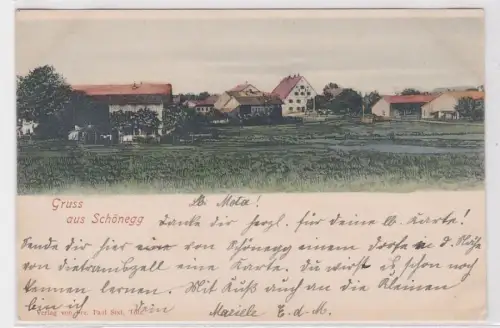 Gruss
aus Schönegg
Lb. Meta!
Danke dir herzl. für deine lb. Karte!
Sende dir hier von Schönegg einem Dorfe in d. Nähe
von Dietramszell eine Karte. Du wirst es schon noch
kennen lernen. Mit Kuß auch an die Kleinen
bin ich Dein Mariele
Verlag von